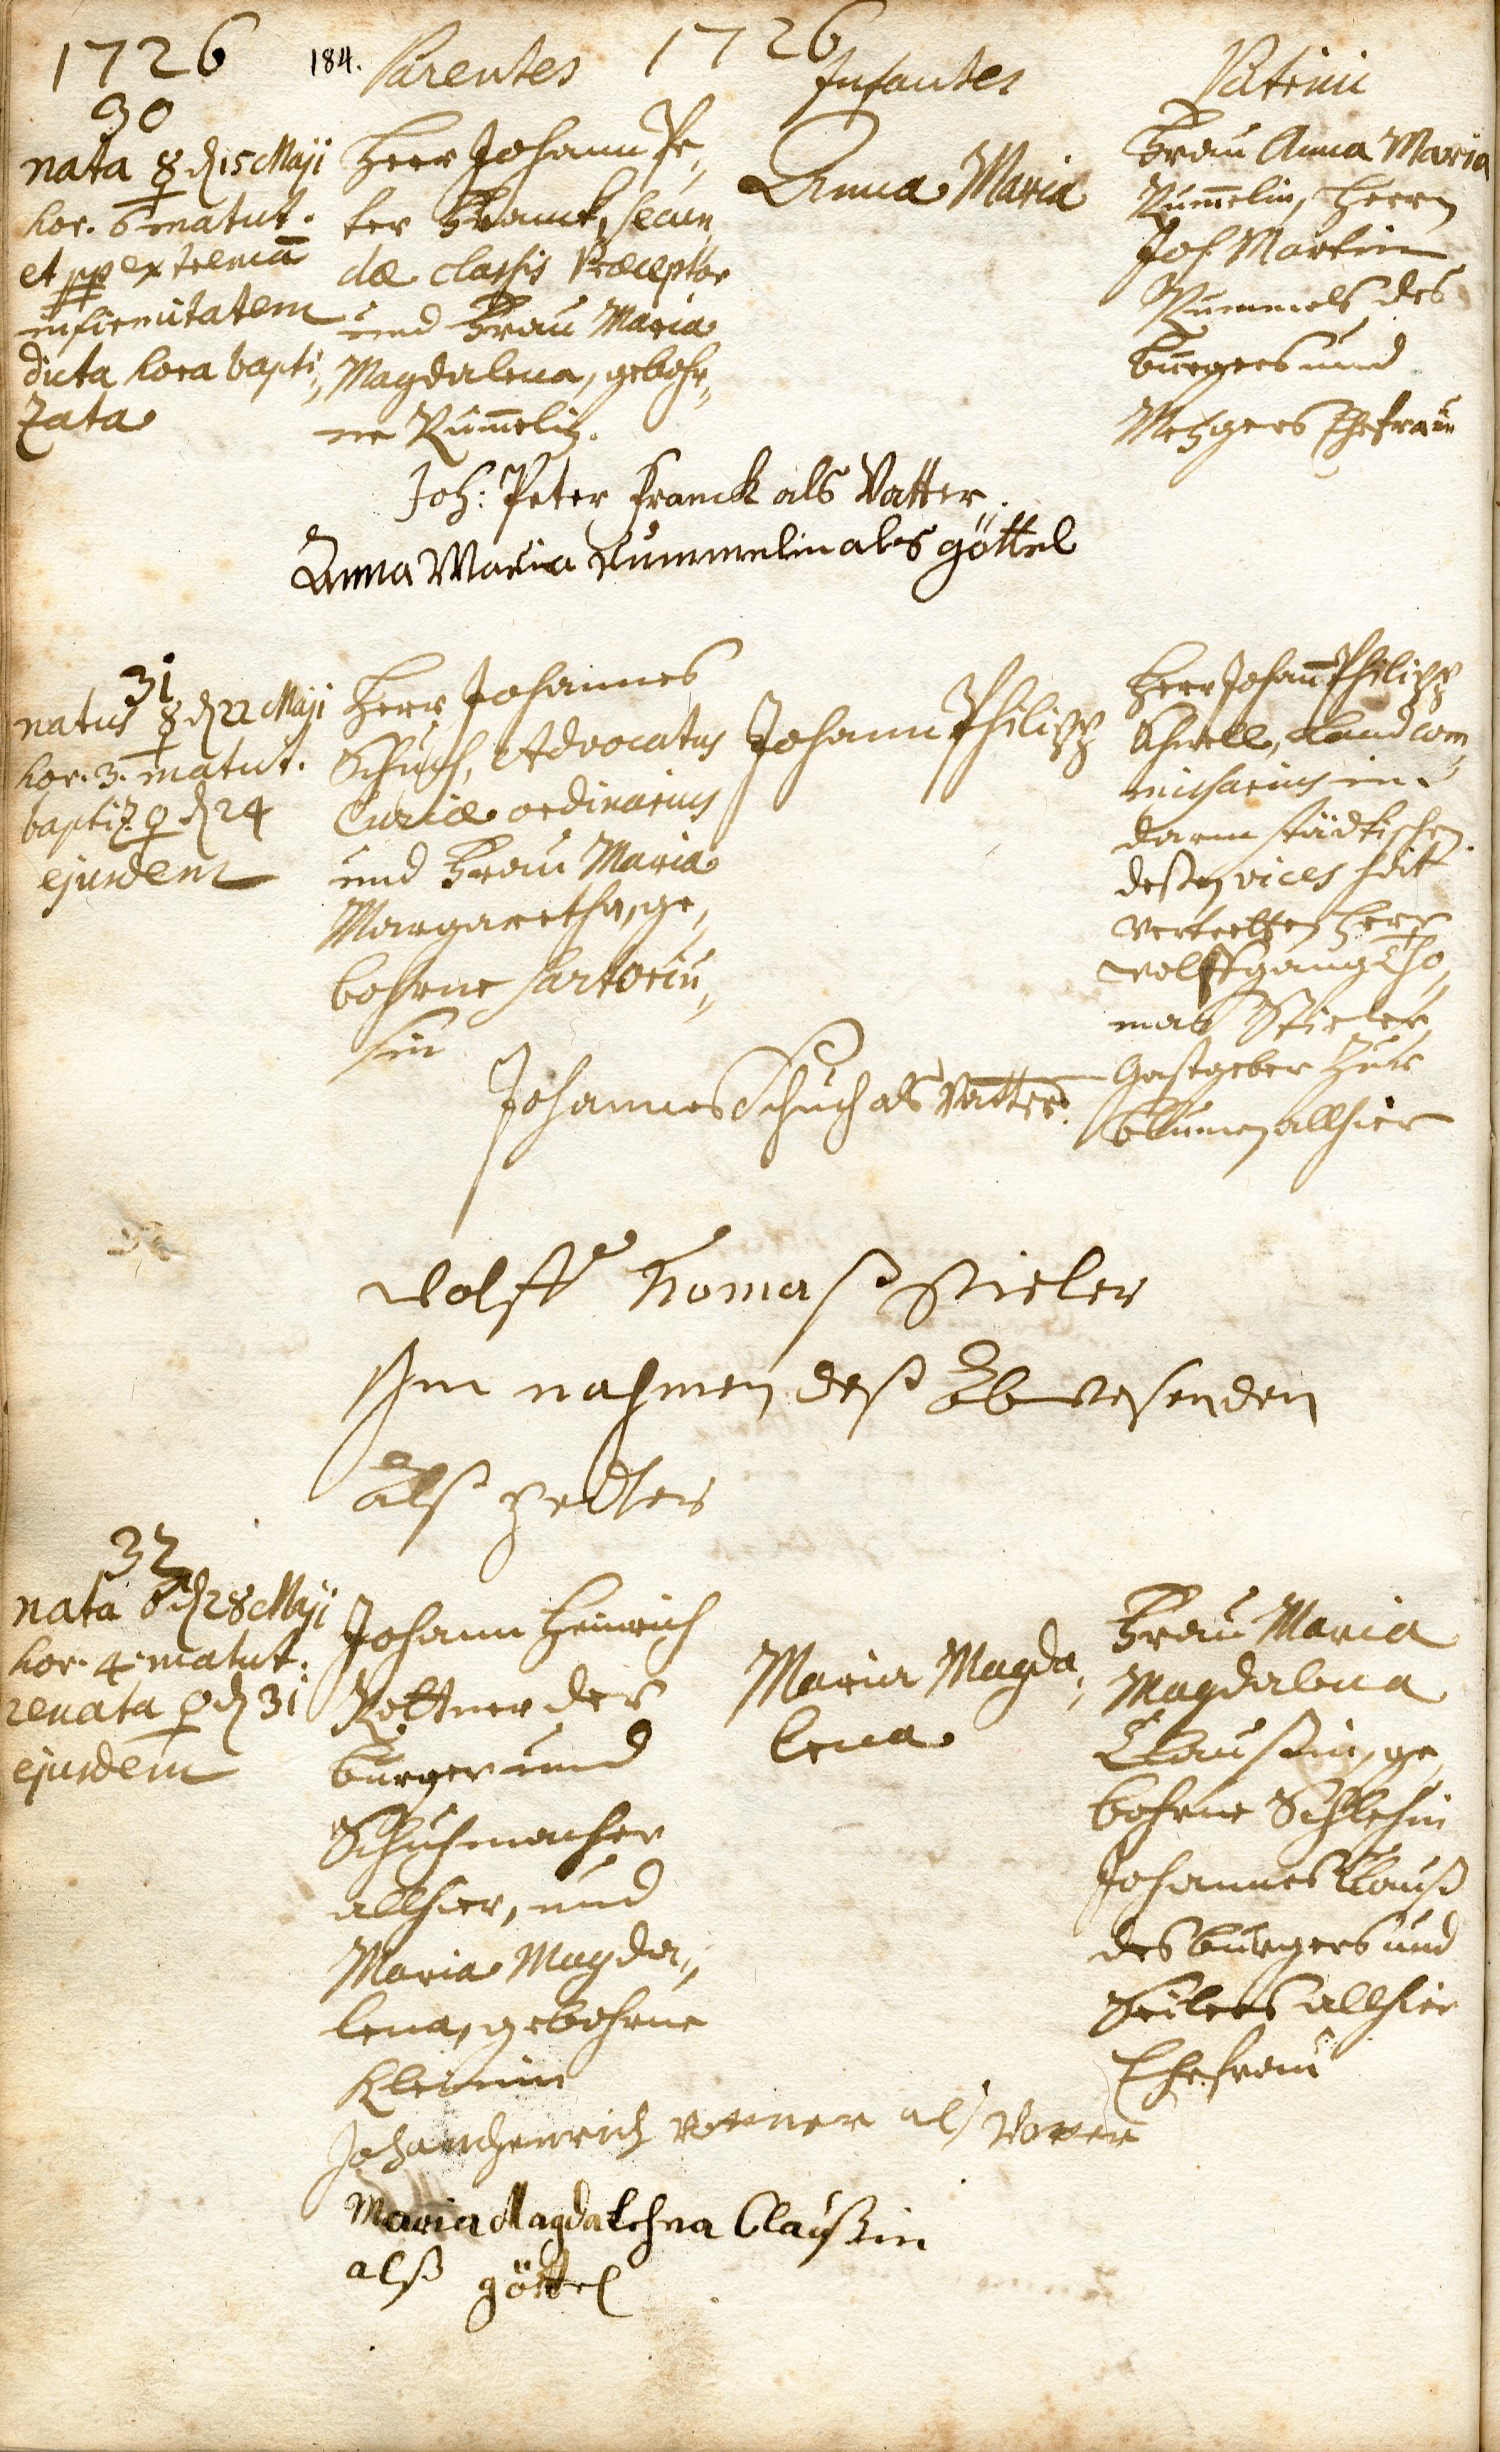 1726
184.
Parentes
1726
Infantes
Patrini
30
nata ☿ d 15 Maji
hor. 6 matut.
et pp extremã
infirmitatem
dicta hora bapti„
zata
Herr Johann Pe„
ter Franck, secun„
dæ classis Præceptor
und Frau Maria
Magdalena, gebohr„
ne Rum̅elin.
Anna Maria
Frau Anna Maria
Rum̅elin, Herrn
Joh. Martin
Rummels des
burgers und
Metzgers Ehefrau
Joh: Peter Franck als Vatter.
Anna Maria Rummelin als göttel
31
natus ☿ d 22 Maji
hor. 3. matut.
baptiz. ♀ d 24
ejusdem
Herr Johannes
Schuch, Advocatus
Curiæ ordinarius
und Frau Maria
Margaretha, ge„
bohrne Sartoriu„
sin
Johann Philipp
Herr Johan̅ Philipp
Schnell, Landcom„
missarius im
darmstädtischen
dessen vices hatt
vertretten Herr
Wolffgang Tho„
mas Stieler
Gastgeber zur
blumen allhier
Johannes Schuch als Vatter.
Wolff Thomas Stieler
Im nahmen deß Abwesenden
Alß Petter
32
nata ♂ d 28 Maji
hor. 4 matut.
renata ♀ d 31
ejusdem
Johann Heinrich
Rottner der
burger und
Schuhmacher
allhier, und
Maria Magda„
lena, gebohrne
Kleinin
Maria Magda„
lena
Frau Maria
Magdalena
Claußin, ge„
bohrne
Johannes Clauß
des burgers und
Seilers allhier
Ehefrau
Johan henrich rottner als Vatter
Maria Magdalehna Claußin
alß göttel